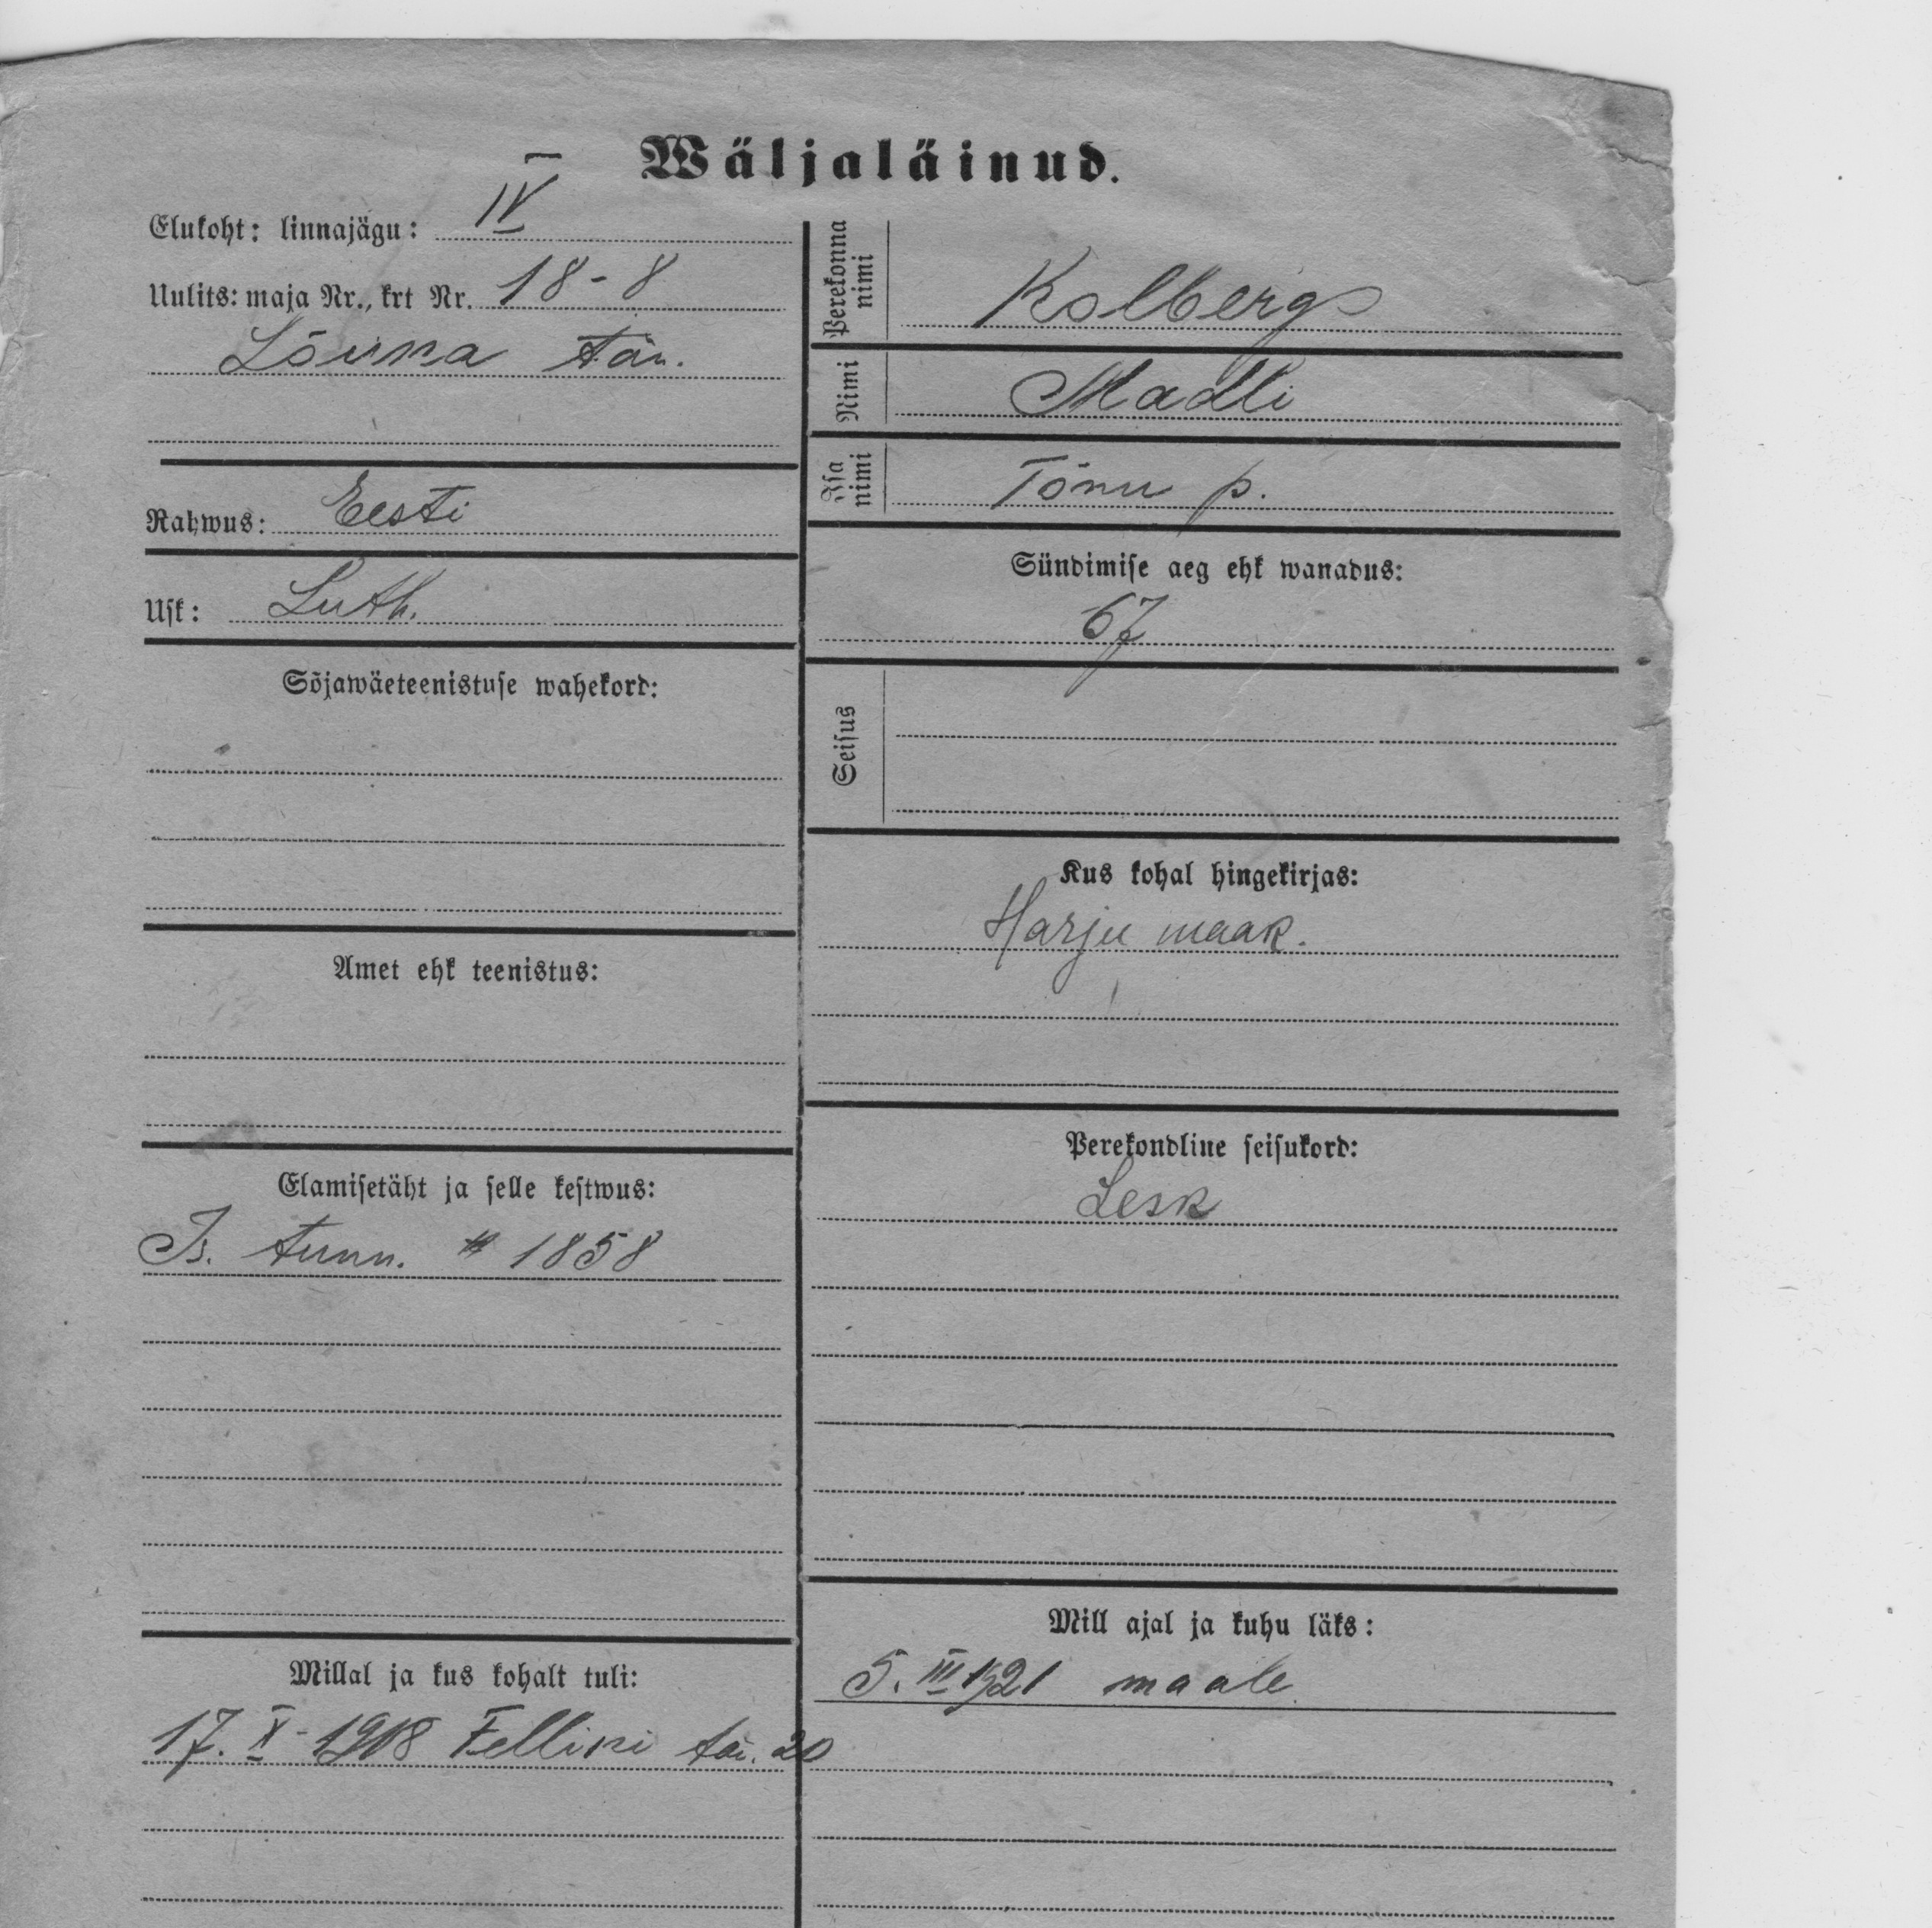 Wäljaläinud.
Elukoht: linnajägu: IV
Uulits: maja Nr., krt Nr. 18-8
Lõuna tän.
Rahwus: Eesti
Usk: Luth.
Sõjawäeteenistuse wahekord:
Amet ehk teenistus:
Elamisetäht ja selle kestwus:
Is. tunn. № 1858
Millal ja kus kohalt tuli:
17. X - 1918 Fellini tän. 20
Perekonna nimi Kolberg
Nimi Madli
Isa nimi Tõnu p.
Sündimise aeg ehk wanadus:
67
Seisus
Kus kohal hingekirjas:
Harju maak.
Perekondline seisukord:
Lesk
Mill ajal ja kuhu läks:
5. III 1921 maale